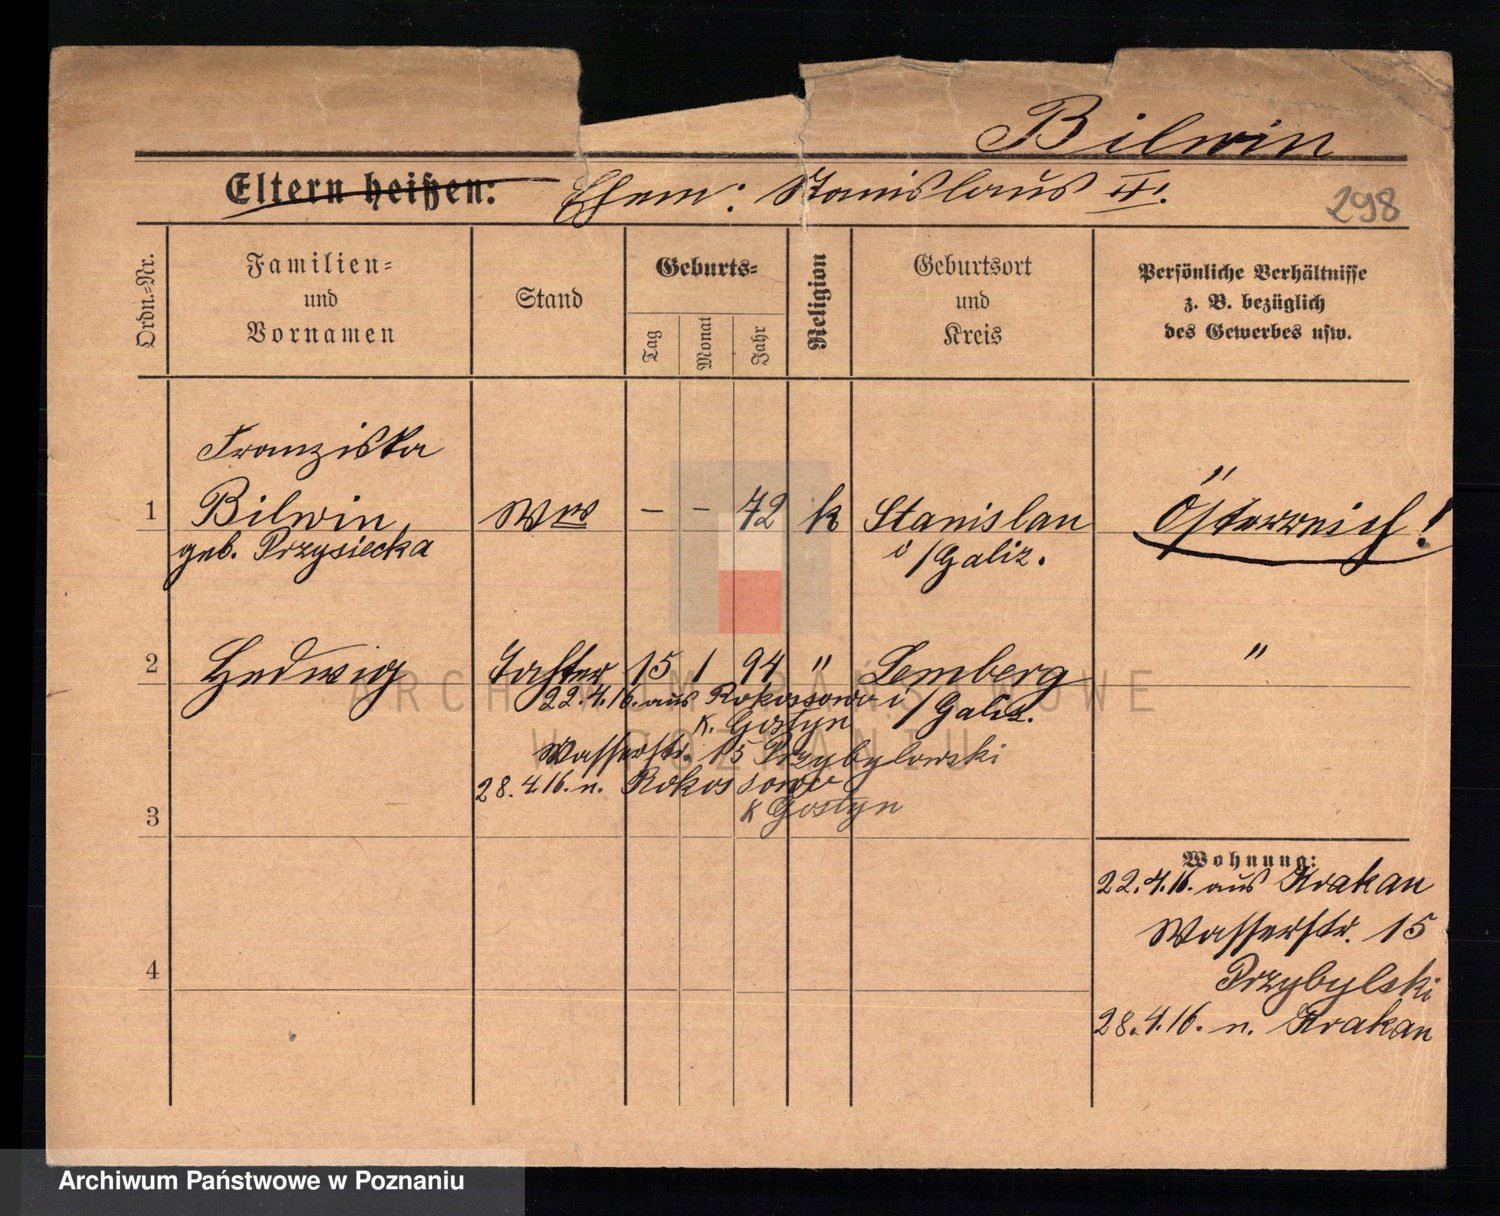 Bilwin
Eltern heißen: Ehem: Stanislaus II!
298
Ordn.=Nr.
Familien=
und
Vornamen
Stand
Geburts=
Tag
Monat
Jahr
Religion
Geburtsort
und
Kreis
Persönliche Verhältnisse
z. B. bezüglich
des Gewerbes usw.
Franziska
1 Bilwin, Ww - - 72 k Stanislau Österreich!
geb. Przysiecka i/Galiz.
2 Hedwig Tochter 15 1 94 " Lemberg "
22.4.16. aus Rokossowo i/Galiz.
K. Gostyn
Wasserstr. 15 Przybylowski
28.4.16. n. Rokossowo
K Gostyn
3
Wohnung:
22.4.16. aus Krakau
Wasserstr. 15
Przybylski
4
28.4.16. n. Krakau
ARCHIWUM PAŃSTWOWE
W POZNANIU
Archiwum Państwowe w Poznaniu